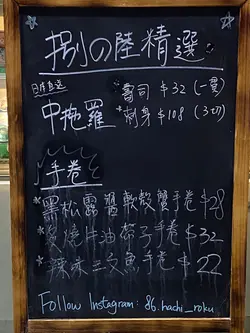 捌の陸精選
日本直送
壽司 $32 (一貫)
中拖羅 *刺身 $108 (3切)
手卷
*黑松露醬軟殼蟹手卷 $28
*炙燒片油帶子手卷 $32
*辣味三文魚手卷 $22
Follow Instagram: 86.hachi_roku